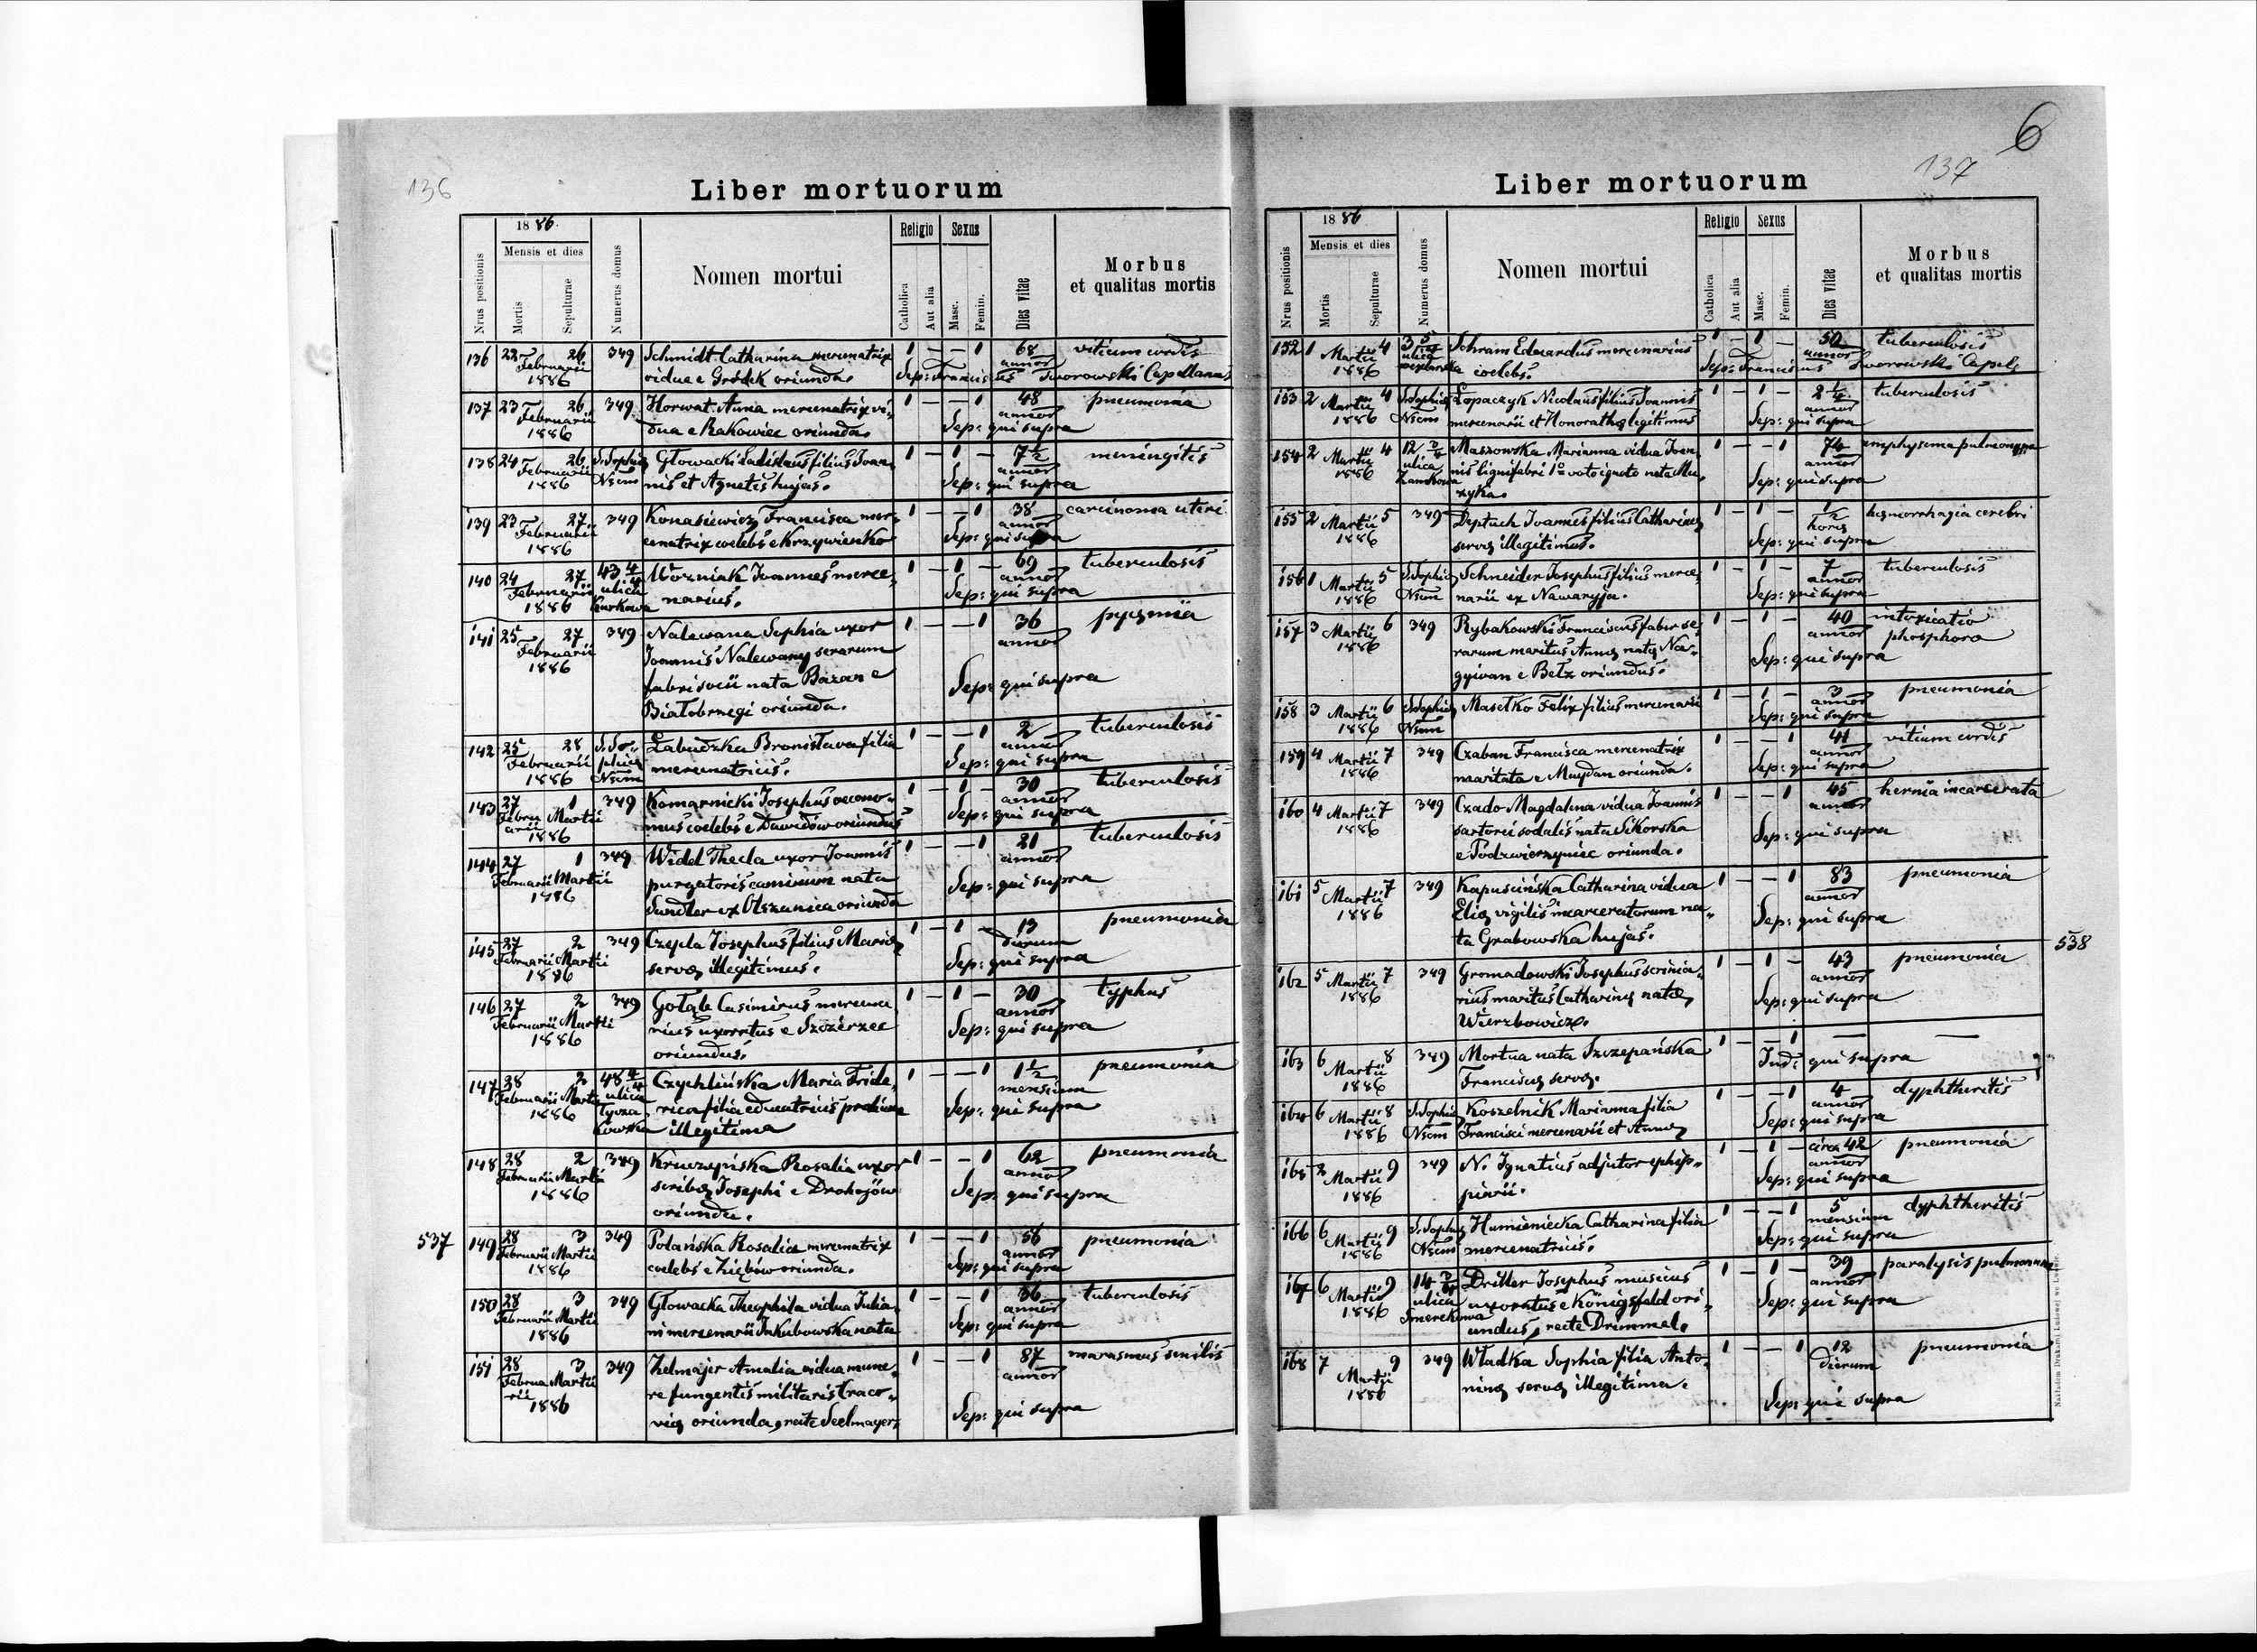 136
Liber mortuorum
Nrus positionis
1886.
Mensis et dies
Mortis
Sepulturae
Numerus domus
Nomen mortui
Religio
Catholica
Aut alia
Sexus
Masc.
Femin.
Dies vitae
Morbus
et qualitas mortis
136 22 26 349 Schmidt Catharina mercenatrix 1 — — 1 68 vitium cordis
Februarii 1886 vidua e Gródek oriunda. annor
Sep: Franciscus Sworowski Capellanus
137 23 26 349 Horwat Anna mercenatrix vi- 1 — — 1 48 pneumonia
Februarii 1886 dua e Rakowiec oriunda. annor
Sep: qui supra
138 24 26 S. Sophia Głowacki Ladislaus filius Joan- 1 — 1 — 7½ meningitis
Februarii 1886 Nsum nis et Agnetis hujas. annor
Sep: qui supra
139 23 27 349 Konasiewicz Francisca mer- 1 — — 1 38 carcinoma uteri
Februarii 1886 cenatrix coelebs e Krzywienko annor
Sep: qui supra
140 24 27 43 4/4 Woźniak Joannes merce- 1 — 1 — 69 tuberculosis
Februarii 1886 ulica Kurkowa narius. annor
Sep: qui supra
141 25 27 349 Nalewana Sophia uxor 1 — — 1 36 pyęmia
Februarii 1886 Joannis Nalewany serarum annor
fabri socii nata Bazan e
Białobrzegi oriunda.
Sep: qui supra
142 25 28 S. So- Łabudzka Bronisława filia 1 — — 1 2 tuberculosis
Februarii 1886 phia Nsum mercenatricis. annor
Sep: qui supra
143 27 1 349 Komarnicki Josephus oecono- 1 — 1 — 30 tuberculosis
Februarii Martii 1886 mus coelebs e Dawidów oriundus annor
Sep: qui supra
144 27 1 349 Widel Thecla uxor Joannis 1 — — 1 21 tuberculosis
Februarii Martii 1886 purgatoris caminum nata annor
Sandler ex Olszanica oriunda
Sep: qui supra
145 27 2 349 Czepla Josephus filius Marię 1 — 1 — 13 pneumonia
Februarii Martii 1886 servę illegitimus. dierum
Sep: qui supra
146 27 2 349 Gołąb Casimirus mercena- 1 — 1 — 30 typhus
Februarii Martii 1886 rius uxoratus e Szczerzec annor
oriundus.
Sep: qui supra
147 28 2 48 4/4 Czychlińska Maria Fride- 1 — — 1 1½ pneumonia
Februarii Martii 1886 ulica Łyczakowska rica filia educatricis prolium mensium
illegitima
Sep: qui supra
148 28 2 349 Kruczyńska Rosalia uxor 1 — — 1 62 pneumonia
Februarii Martii 1886 scribę Josephi e Drohojów annor
oriunda.
Sep: qui supra
537 149 28 3 349 Polańska Rosalia mercenatrix 1 — — 1 56 pneumonia
Februarii Martii 1886 coelebs e Ziębów oriunda. annor
Sep: qui supra
150 28 3 349 Głowacka Theophila vidua Julia- 1 — — 1 36 tuberculosis
Februarii Martii 1886 ni mercenarii Jakubowska nata annor
Sep: qui supra
151 28 3 349 Zelmajer Amalia vidua mune- 1 — — 1 87 marasmus senilis
Februarii Martii 1886 re fungentis militaris Craco- annor
vię oriunda, recte Seelmayer.
Sep: qui supra
6
137
Liber mortuorum
Nrus positionis
1886
Mensis et dies
Mortis
Sepulturae
Numerus domus
Nomen mortui
Religio
Catholica
Aut alia
Sexus
Masc.
Femin.
Dies vitae
Morbus
et qualitas mortis
152 1 Martii 4 3 ulica Schram Eduardus mercenarius 1 — 1 — 50 tuberculosis
1886 coelebs. annor
Sep: Franciscus Sworowski Capel.
153 2 Martii 4 S. Sophia Łopaczyk Nicolaus filius Joannis 1 — 1 — 2¼ tuberculosis
1886 Nsum mercenarii et Honorathę legitimus annor
Sep: qui supra
154 2 Martii 4 12 2/4 Maszowska Marianna vidua Joan- 1 — — 1 74 emphysema pulmonum
1886 ulica Zamkowa nis lignifabri 1o voto ignoto nata Mu- annor
zyka.
Sep: qui supra
155 2 Martii 5 349 Deptuch Joannes filius Catharinę 1 — 1 — ½ hęmorrhagia cerebri
1886 servę illegitimus. horę
Sep: qui supra
156 1 Martii 5 S. Sophia Schneider Josephus filius merce- 1 — 1 — 7 tuberculosis
1886 Nsum narii ex Nawaryja. annor
Sep: qui supra
157 3 Martii 6 349 Rybakowski Franciscus faber se- 1 — 1 — 40 intoxicatio
1886 rarum maritus Annę natę Na- annor phosphoro
gyivan e Betz oriundus.
Sep: qui supra
158 3 Martii 6 S. Sophia Masełko Felix filius mercenarii 1 — 1 — 3 pneumonia
1886 Nsum annor
Sep: qui supra
159 4 Martii 7 349 Czaban Francisca mercenatrix 1 — — 1 41 vitium cordis
1886 maritata e Maydan oriunda. annor
Sep: qui supra
160 4 Martii 7 349 Czado Magdalena vidua Joannis 1 — — 1 45 hernia incarcerata
1886 sartoris sodalis nata Sikorska annor
e Podzwierzyniec oriunda.
Sep: qui supra
161 5 Martii 7 349 Kapuscińska Catharina vidua 1 — — 1 83 pneumonia
1886 Elię vigilis incarceratorum na- annor
ta Grabowska hujas.
Sep: qui supra
538
162 5 Martii 7 349 Gromadowski Josephus scrinia- 1 — 1 — 43 pneumonia
1886 rius maritus Catharinę natę annor
Wierzbowicz.
Sep: qui supra
163 6 Martii 8 349 Mortua nata Szczepańska 1 — — 1 — —
1886 Franciscę servę.
Ind: qui supra
164 6 Martii 8 S. Sophia Koszelnik Marianna filia 1 — — 1 4 dyphtheritis
1886 Nsum Francisci mercenarii et Annę annor
Sep: qui supra
165 2 Martii 9 349 N. Ignatius adjutor ephip- 1 — 1 — circa 42 pneumonia
1886 piarii. annor
Sep: qui supra
166 6 Martii 9 S. Sophia Humieniecka Catharina filia 1 — — 1 5 dyphtheritis
1886 Nsum mercenatricis. mensium
Sep: qui supra
167 6 Martii 9 14 2/4 Dritler Josephus musicus 1 — 1 — 39 paralysis pulmonum
1886 ulica Smerekowa uxoratus e Königsfeld ori- annor
undus, recte Drimmel.
Sep: qui supra
168 7 Martii 9 349 Władka Sophia filia Anto- 1 — — 1 12 pneumonia
1886 ninę servę illegitima. dierum
Sep: qui supra